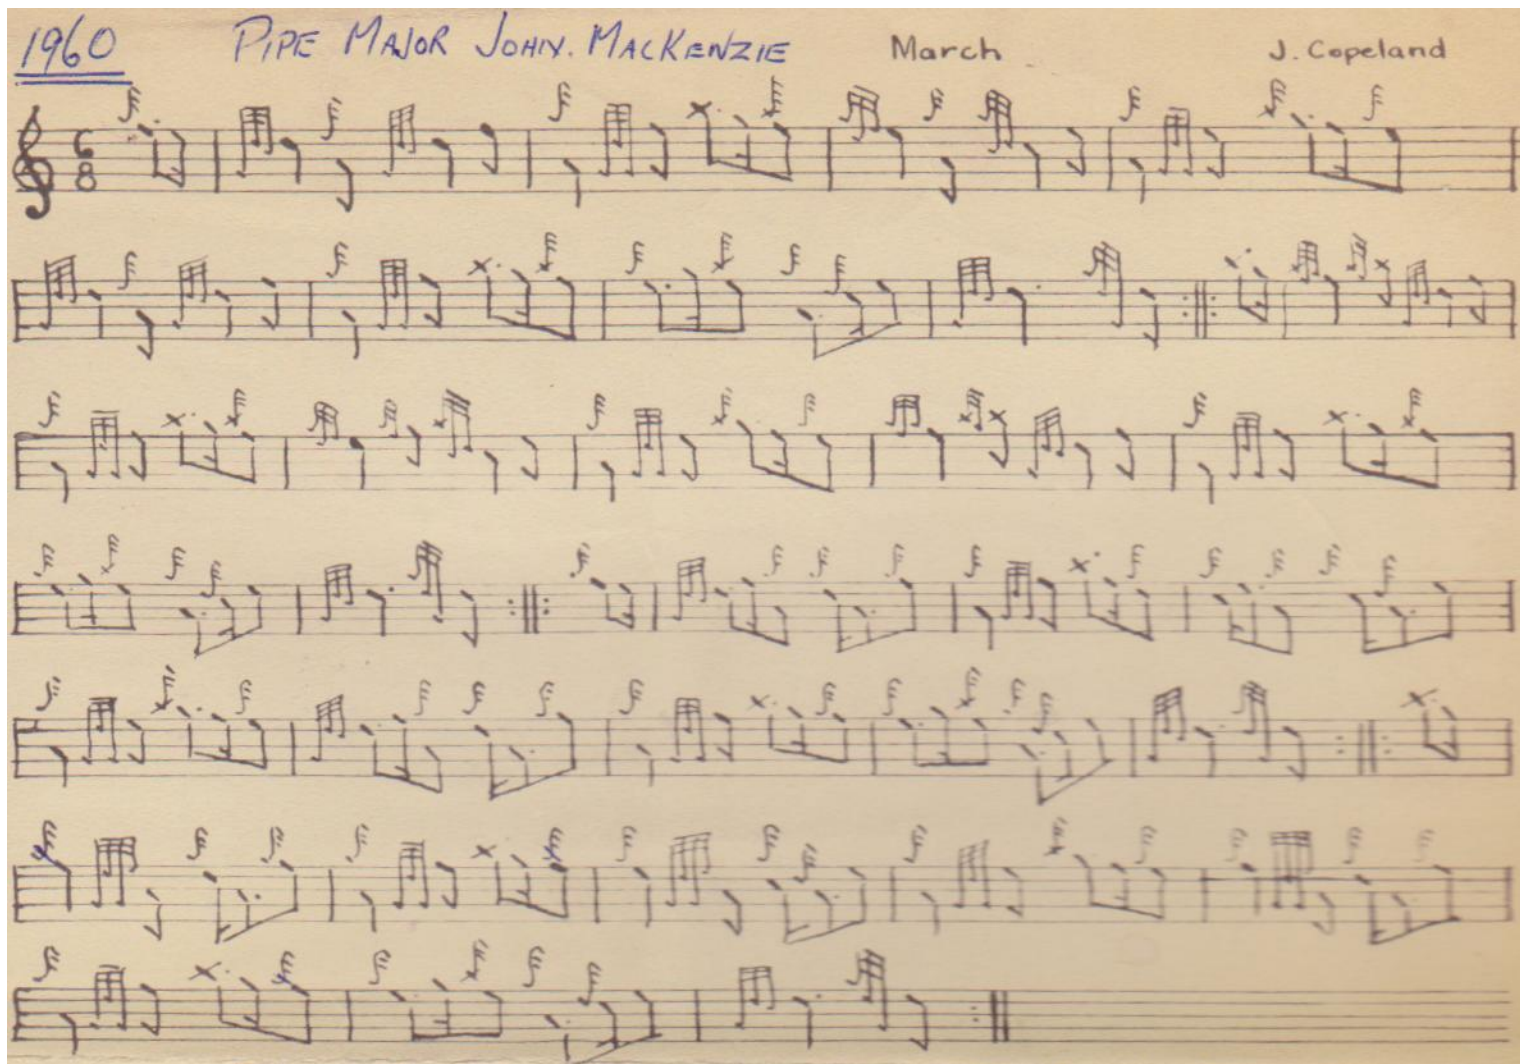 1960 PIPE MAJOR JOHN. MACKENZIE March J. Copeland
6
8